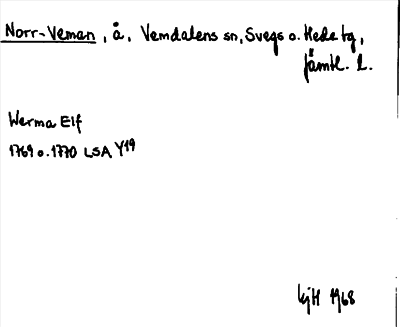 Norr-Veman, å, Vemdalens sn, Svegs o. Hede tg,
Jämtl. l.
Werma Elf
1769 o. 1770 LSA Y19
KjH 1968